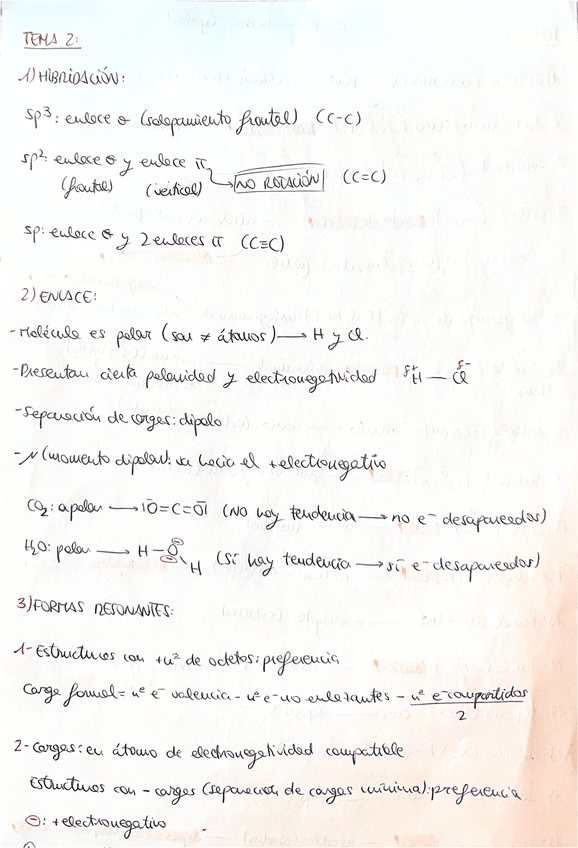 TEMA 2:
1) HIBRIDACIÓN:
sp³: enlace σ (solapamiento frontal) (C-C)
sp²: enlace σ y enlace π
(frontal) (vertical) → NO ROTACIÓN (C=C)
sp: enlace σ y 2 enlaces π (C≡C)
2) ENLACE:
-Molécula es polar (son ≠ átomos) → H y Cl.
-Presentan cierta polaridad y electronegatividad δ+H — δ-Cl
-Separación de cargas: dipolo
-μ (momento dipolar): va hacia el +electronegativo
CO₂: apolar → |O̅=C=O̅| (NO hay tendencia → no e⁻ desapareados)
H₂O: polar → H-O-H (sí hay tendencia → sí e⁻ desapareados)
3) FORMAS RESONANTES:
1- Estructuras con +nº de octetos: preferencia
Carga formal = nº e⁻ valencia - nº e⁻ no enlazantes - nº e⁻ compartidos / 2
2- Cargas: en átomo de electronegatividad compatible
Estructuras con - cargas (separación de cargas mínima): preferencia
⊖: +electronegativo